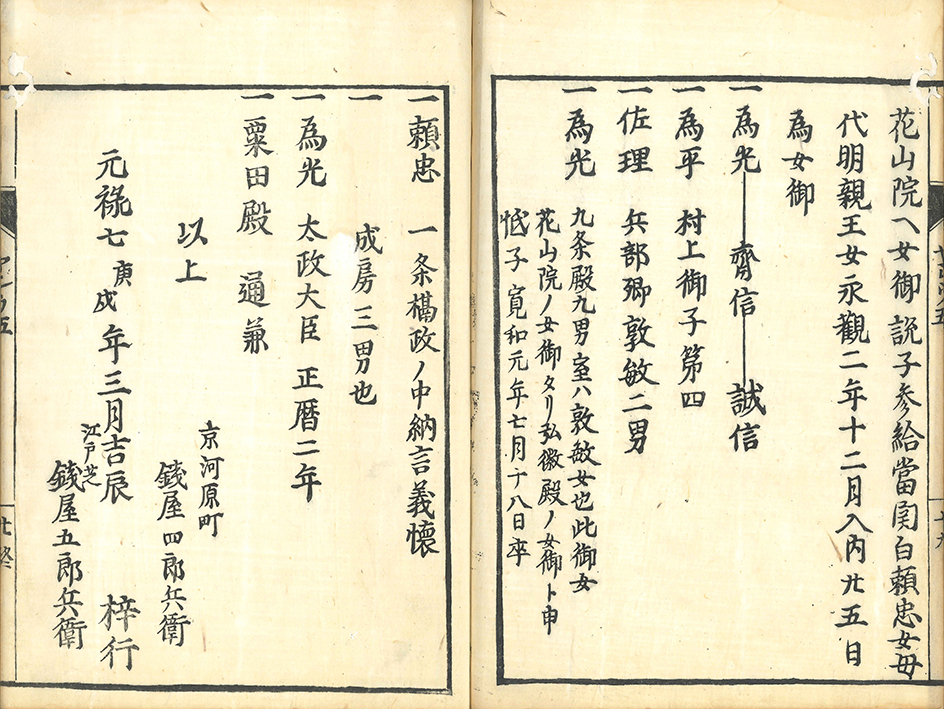 花山院ヘ女御説子参給當関白頼忠女母
代明親王女永觀二年十二月入内廿五日
為女御
一為光 齋信 誠信
一為平 村上御子第四
一佐理 兵部卿敦敏二男
一為光 九条殿九男室ハ敦敏女也此御女
花山院ノ女御タリ弘徽殿ノ女御ト申
忯子寛和元年七月十八日卒
一頼忠 一条摂政ノ中納言義懐
一 成房三男也
一為光 太政大臣 正暦二年
一粟田殿 通兼
以上
京河原町
銭屋四郎兵衛
元禄七庚戌年三月吉辰 梓行
江戸芝
銭屋五郎兵衛